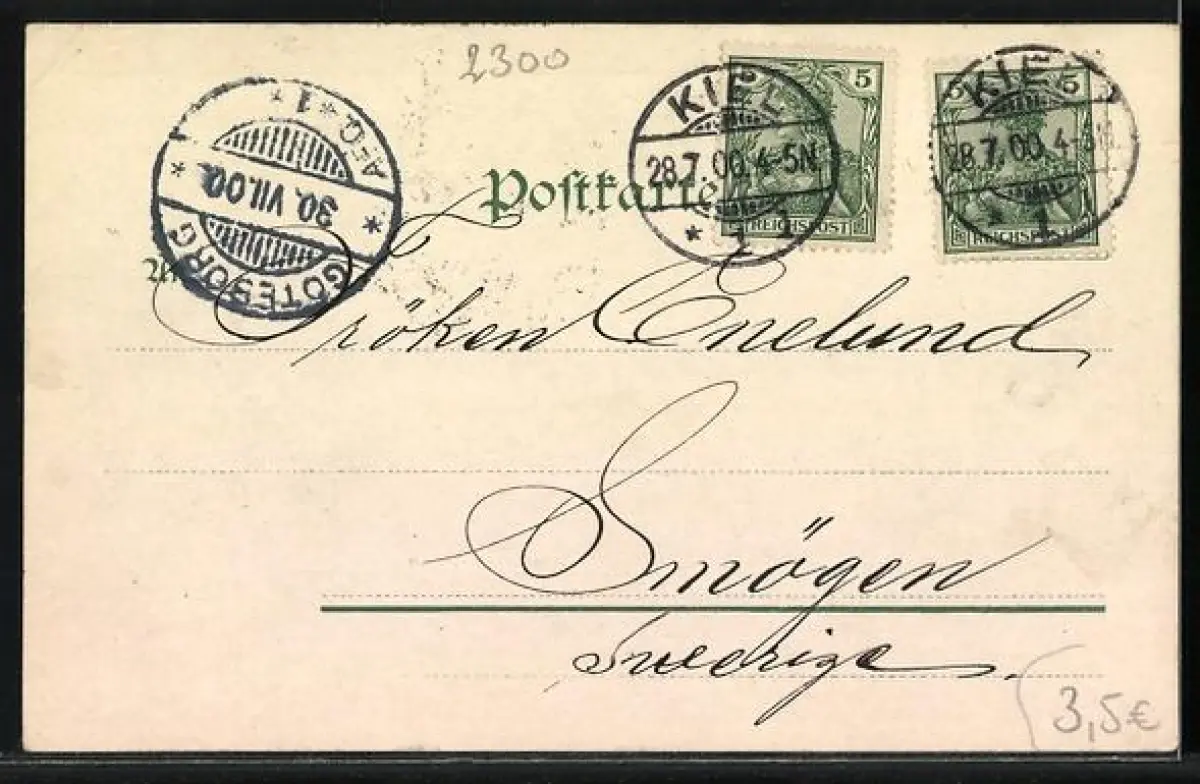 2300
KIEL
28.7.00.4-5N
* 1
5
REICHSPOST
KIEL
28.7.00.4-5N.
* 1
5 5
REICHSPOST
GÖTEBORG
30. VII. 00.
1. AFG.
Postkarte
Fröken Enelund
Smögen
Sverige.
3,5€